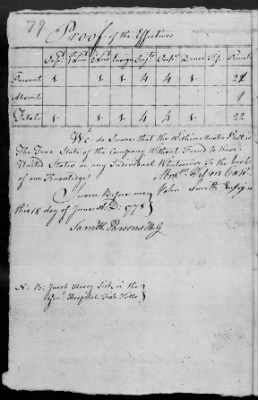 79
Proof of the Effectives
Capt 1 Lieut 2 Lieut Ensign Sergt Corpl Drumr Fife Privates
Present 1 1 1 1 4 4 1 21
Absent 1
Total 1 1 1 1 4 4 1 22
We do Swear that the Within Muster Roll is
The True State of the Company Without Fraud to these
United States or any Individual Whatsoever to the best
of our Knowledge
Capt
John Smith Ensign
Sworn Before me
this 18 day of June AD. 1778
Saml H. Parsons B G
N. B. Jacob Henry Sick in the
Hospital Fish Kills